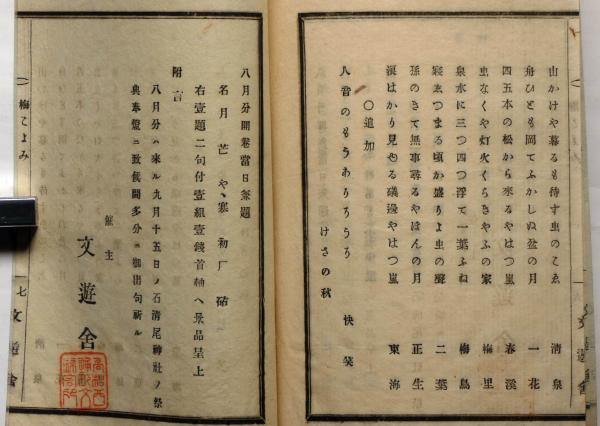 山かけや暮るも待す虫のこゑ 清泉
舟ひとも岡てふかしぬ盆の月 一花
四五本の松から来るやはつ嵐 春溪
虫なくや灯火くらきやふの家 梅里
泉水に三つ四つ浮て一葉ふね 梅鳥
寝ゐつまる頃か盛りよ虫の聲 二葉
孫のきて無事尋るやほんの月 正生
漠はかり見やる礒邊やはつ嵐 東海
〇追加
けさの秋
人音のもうありろうろ 快笑
八月分開巻當日兼題
名月 芒 やゝ寒 初厂 砧
右壹題二句付壹組壹錢首軸へ景品呈上
附言
八月分ハ來ル九月十五日ノ石清尾神社ノ祭
典奉燈ニ致候間多分ニ御出句祈ル
催主
文遊舍
梅こよみ
七
文遊舍